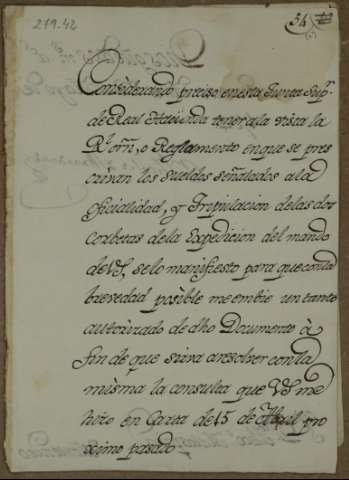 279.42
54
Considerando preciso en esta Junta Sup.r
de Real Hacienda tener a la vista la
R.l orn, o Reglamento en que se pres
criuan los sueldos señalados a la
oficialidad, y Tripulacion de las dos
Corbetas de la Expedicion del mando
de VS, se lo manifiesto para que con la
brevedad posible me embie un tanto
autorizado de dho Documento à
fin de que sirva a resolver con la
misma la consulta que VS me
hizo en Carta de 15 de Abril pro
ximo pasado